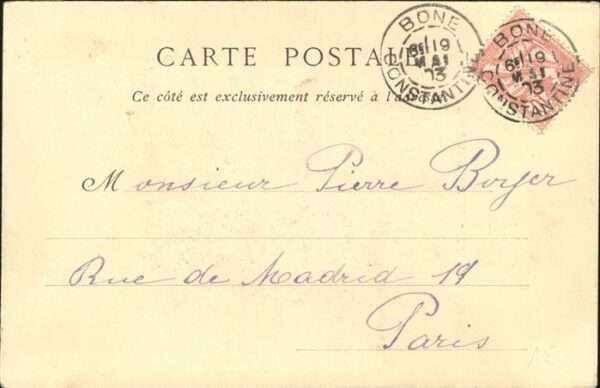 BONE
6E/19
MAI
03
CONSTANTINE
BONE
6E/19
MAI
03
CONSTANTINE
CARTE POSTALE
Ce côté est exclusivement réservé à l'adresse
Monsieur Pierre Boyer
Rue de Madrid 19
Paris